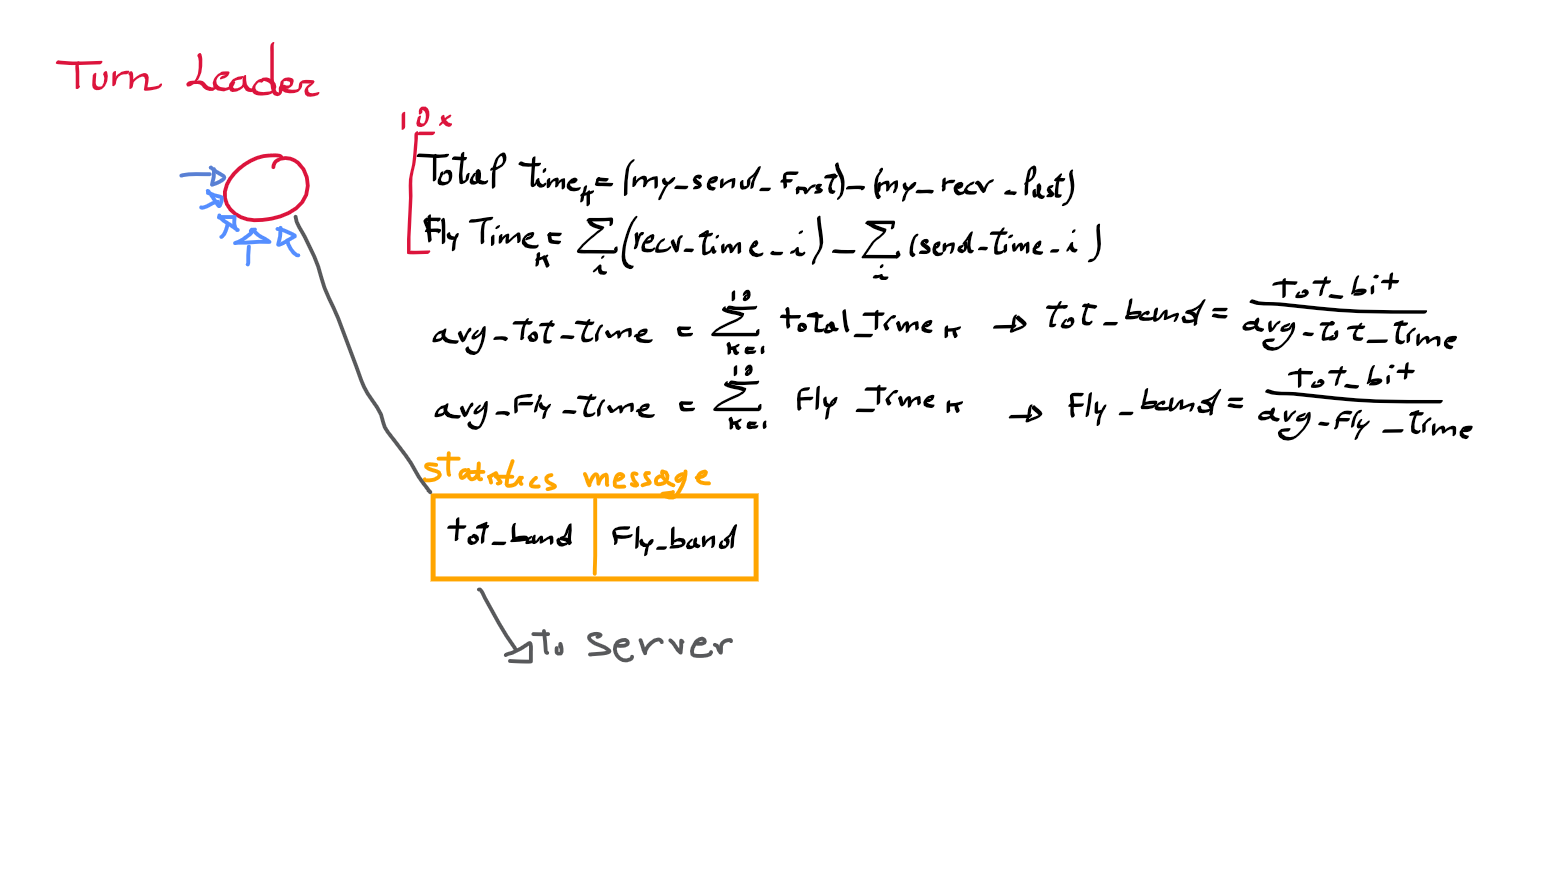 Turn Leader
10x
Total time_k = (my_send_First) - (my_recv_last)
Fly Time_k = ∑_i (recv_time_i) - ∑_i (send_time_i)
avg_Tot_time = ∑_{k=1}^{10} total_Time_k → tot_band = tot_bit / avg_tot_time
avg_Fly_time = ∑_{k=1}^{10} Fly_Time_k → Fly_band = tot_bit / avg_Fly_time
Statistics message
tot_band Fly_band
To Server